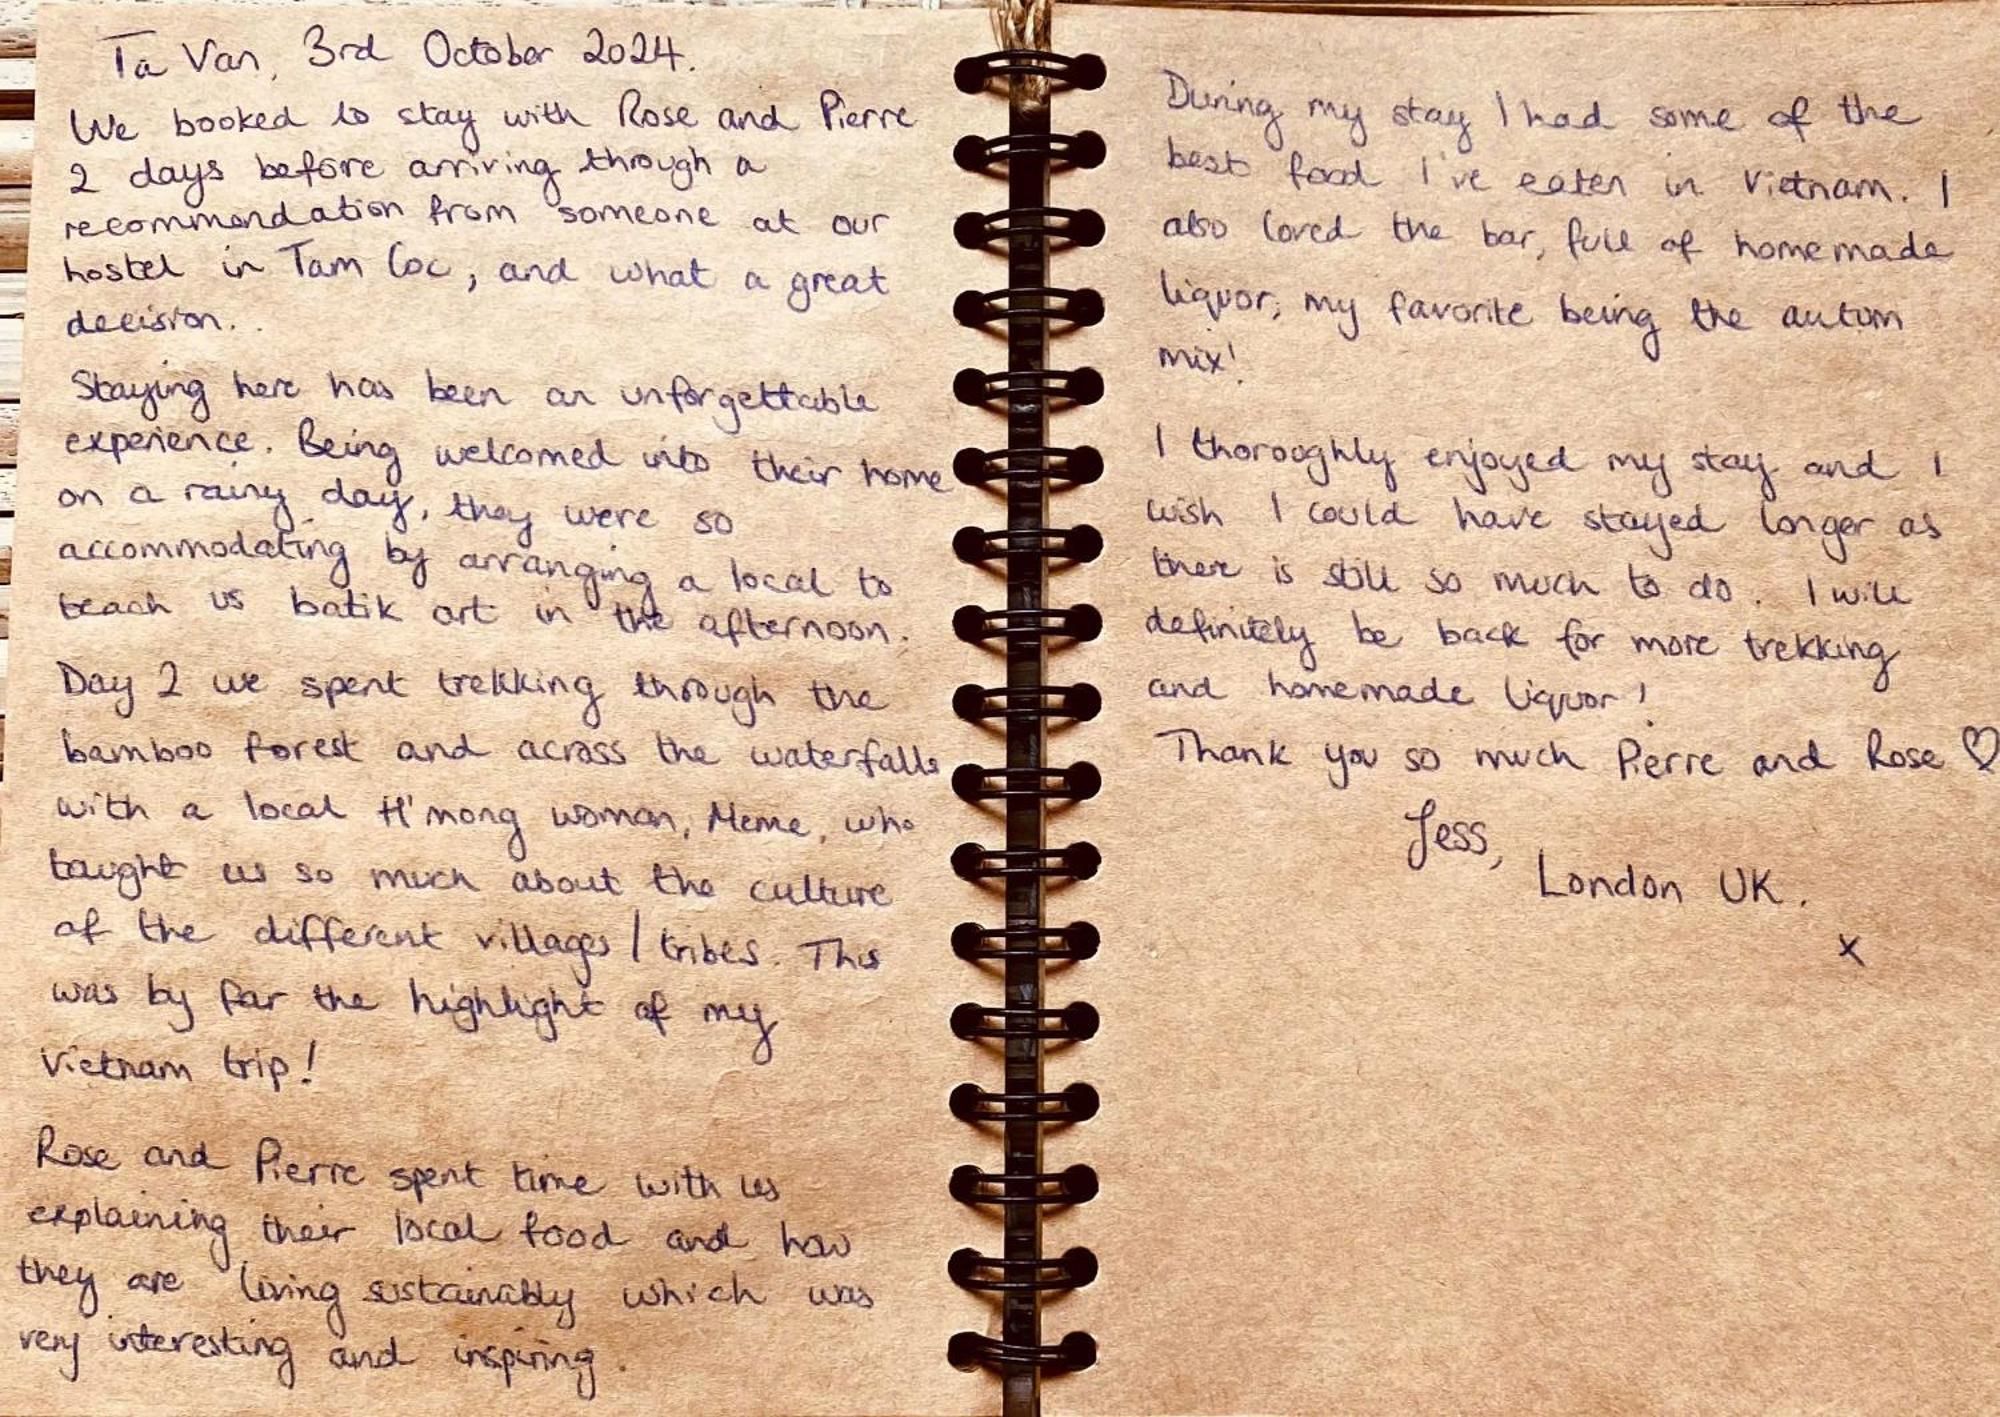 Ta Van, 3rd October 2024.
We booked to stay with Rose and Pierre
2 days before arriving through a
recommendation from someone at our
hostel in Tam Coc, and what a great
decision.
Staying here has been an unforgettable
experience. Being welcomed into their home
on a rainy day, they were so
accommodating by arranging a local to
teach us batik art in the afternoon.
Day 2 we spent trekking through the
bamboo forest and across the waterfalls
with a local H'mong woman, Meme, who
taught us so much about the culture
of the different villages / tribes. This
was by far the highlight of my
Vietnam trip!
Rose and Pierre spent time with us
explaining their local food and how
they are living sustainably which was
very interesting and inspiring.
During my stay I had some of the
best food I've eaten in Vietnam. I
also loved the bar, full of homemade
liquor, my favorite being the autum
mix!
I thoroughly enjoyed my stay and I
wish I could have stayed longer as
there is still so much to do. I will
definitely be back for more trekking
and homemade liquor!
Thank you so much Pierre and Rose ♡
Jess,
London UK.
x